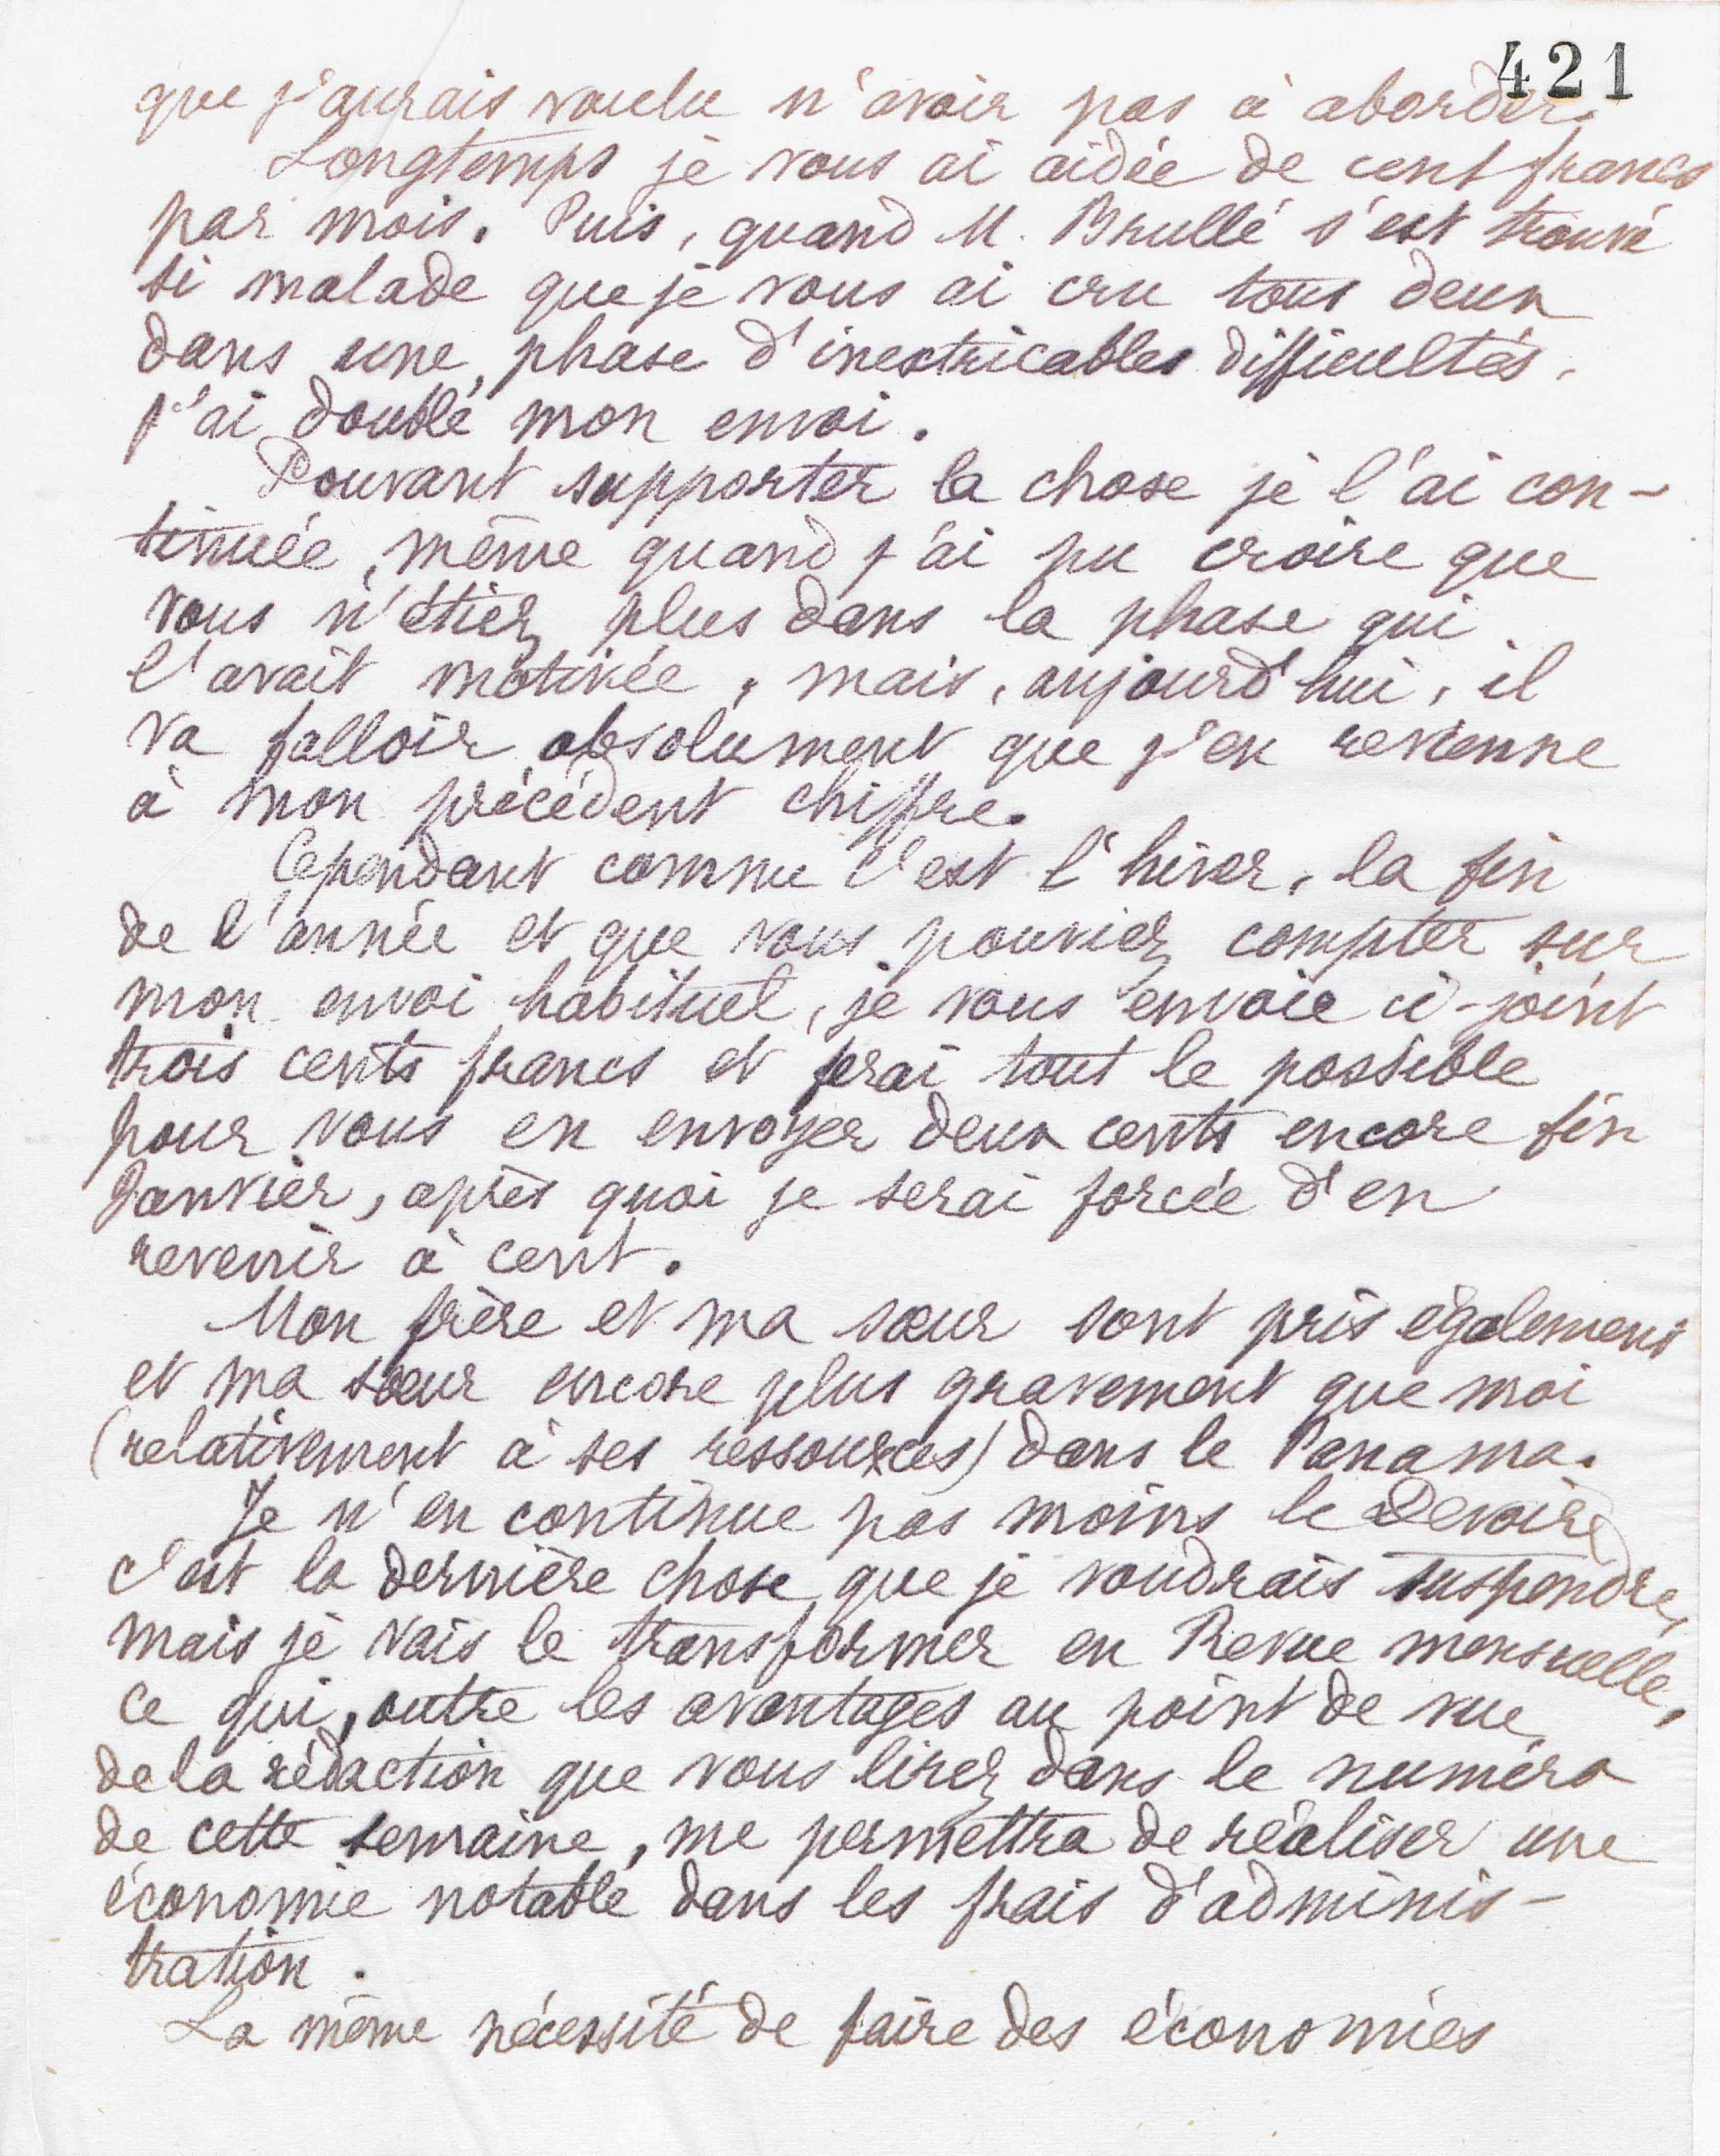 421
que j'aurais voulu n'avoir pas à aborder.
Longtemps je vous ai aidée de cent francs
par mois. Puis, quand M. Brullé s'est trouvé
si malade que je vous ai cru tous deux
dans une phase d'inextricables difficultés,
j'ai doublé mon envoi.
Pouvant supporter la chose je l'ai con-
tinuée, même quand j'ai pu croire que
vous n'étiez plus dans la phase qui
l'avait motivée, mais, aujourd'hui, il
va falloir absolument que j'en revienne
à mon précédent chiffre.
Cependant comme c'est l'hiver, la fin
de l'année et que vous pouviez compter sur
mon envoi habituel, je vous envoie ci-joint
trois cents francs et ferai tout le possible
pour vous en envoyer deux cents encore fin
Janvier, après quoi je serai forcée d'en
revenir à cent.
Mon frère et ma sœur sont pris également
et ma sœur encore plus gravement que moi
(relativement à ses ressources) dans le Panama.
Je n'en continue pas moins le Devoir,
c'est la dernière chose que je voudrais suspendre,
mais je vais le transformer en Revue mensuelle,
ce qui, outre les avantages au point de vue
de la rédaction que vous lirez dans le numéro
de cette semaine, me permettra de réaliser une
économie notable dans les frais d'adminis-
tration.
La même nécessité de faire des économies